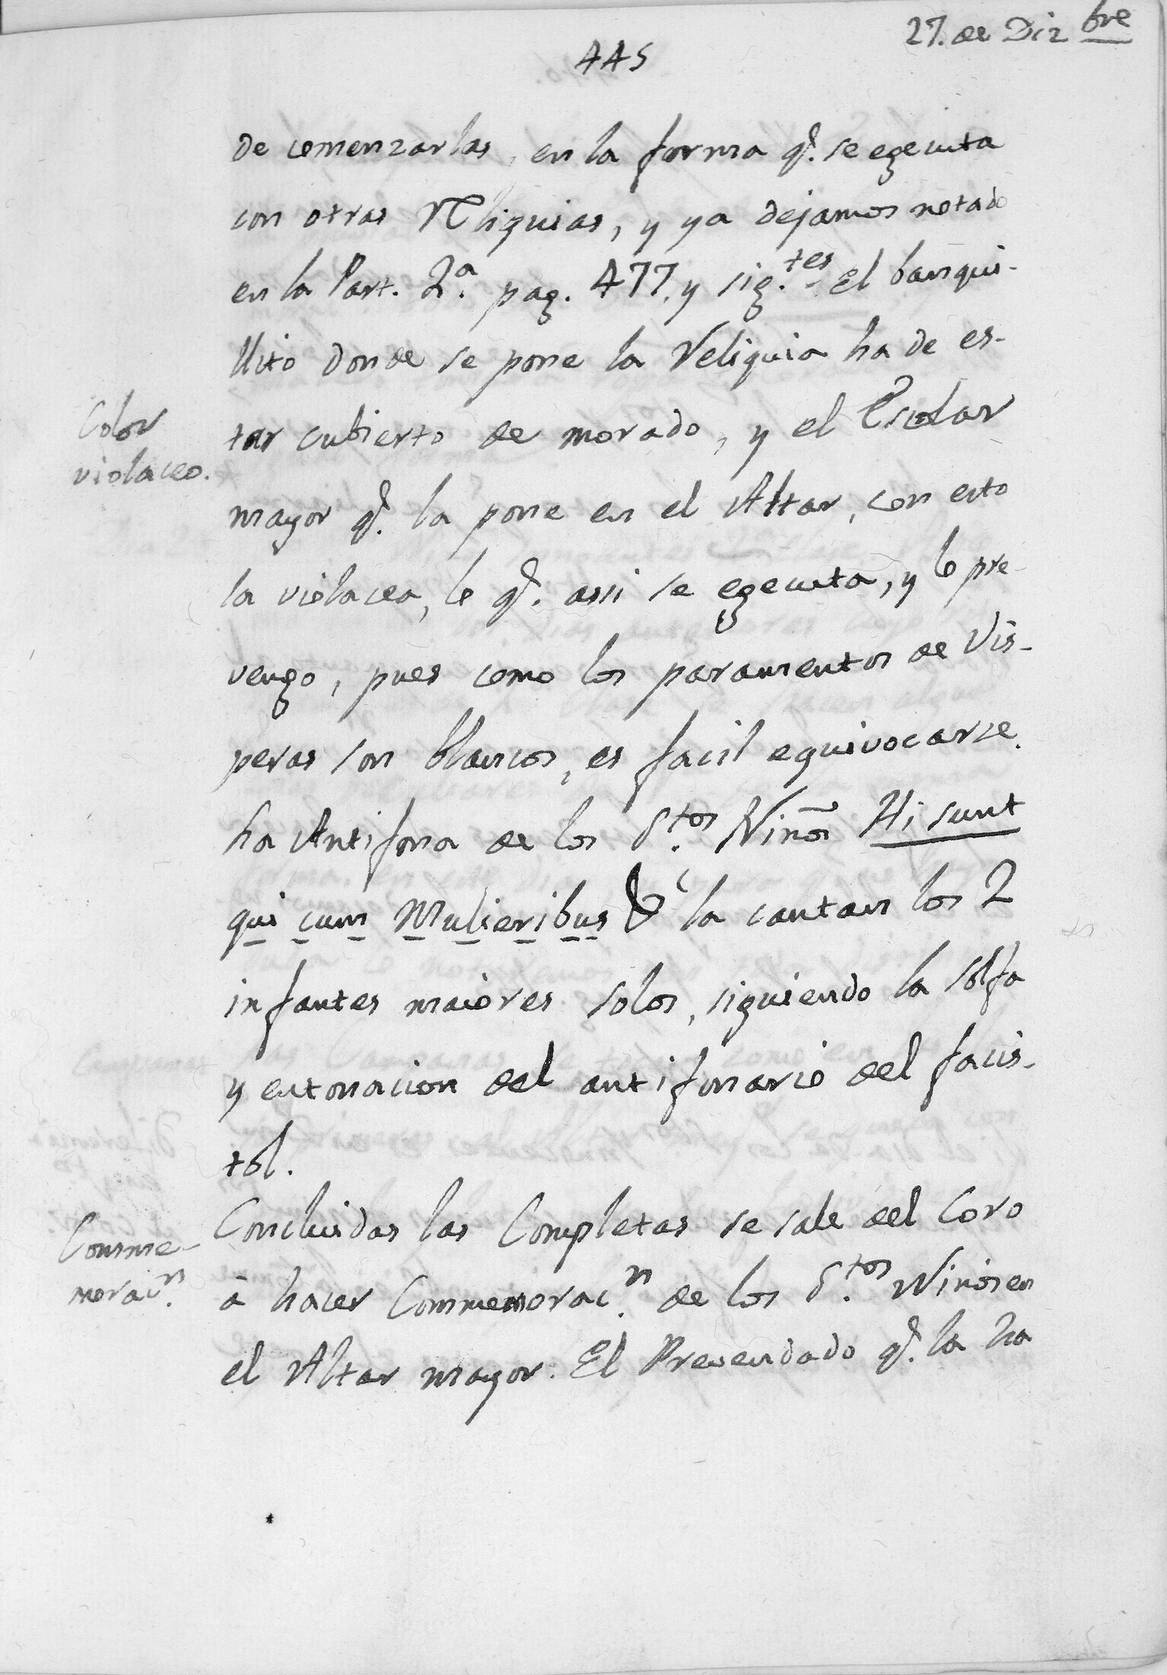 27. de Diz bre
445
de comenzarlas, en la forma q.e se egecuta
con otras Reliquias, y ya dejamos notado
en la Part. 2.a pag. 477. y sig.tes El banqui-
llito donde se pone la Reliquia ha de es-
Color
violaceo.
tar cubierto de morado, y el Escolar
mayor q.e la pone en el Altar, con esto
la violacea, lo q.e assi se egecuta, y lo pre-
vengo, pues como los paramentos de Vis-
peras son blancos, es facil equivocarse.
La Antifona de los S.tos Niños Hi sunt
qui cum Mulieribus &c la cantan los 2
infantes maiores solos, siguiendo la solfa
y entonacion del antifonario del facis-
tol.
Comme-
morac.n
Concluidas las Completas se sale del Coro
à hacer Commemorac.n de los S.tos Niños en
el Altar mayor. El Prevendado q.e la ha